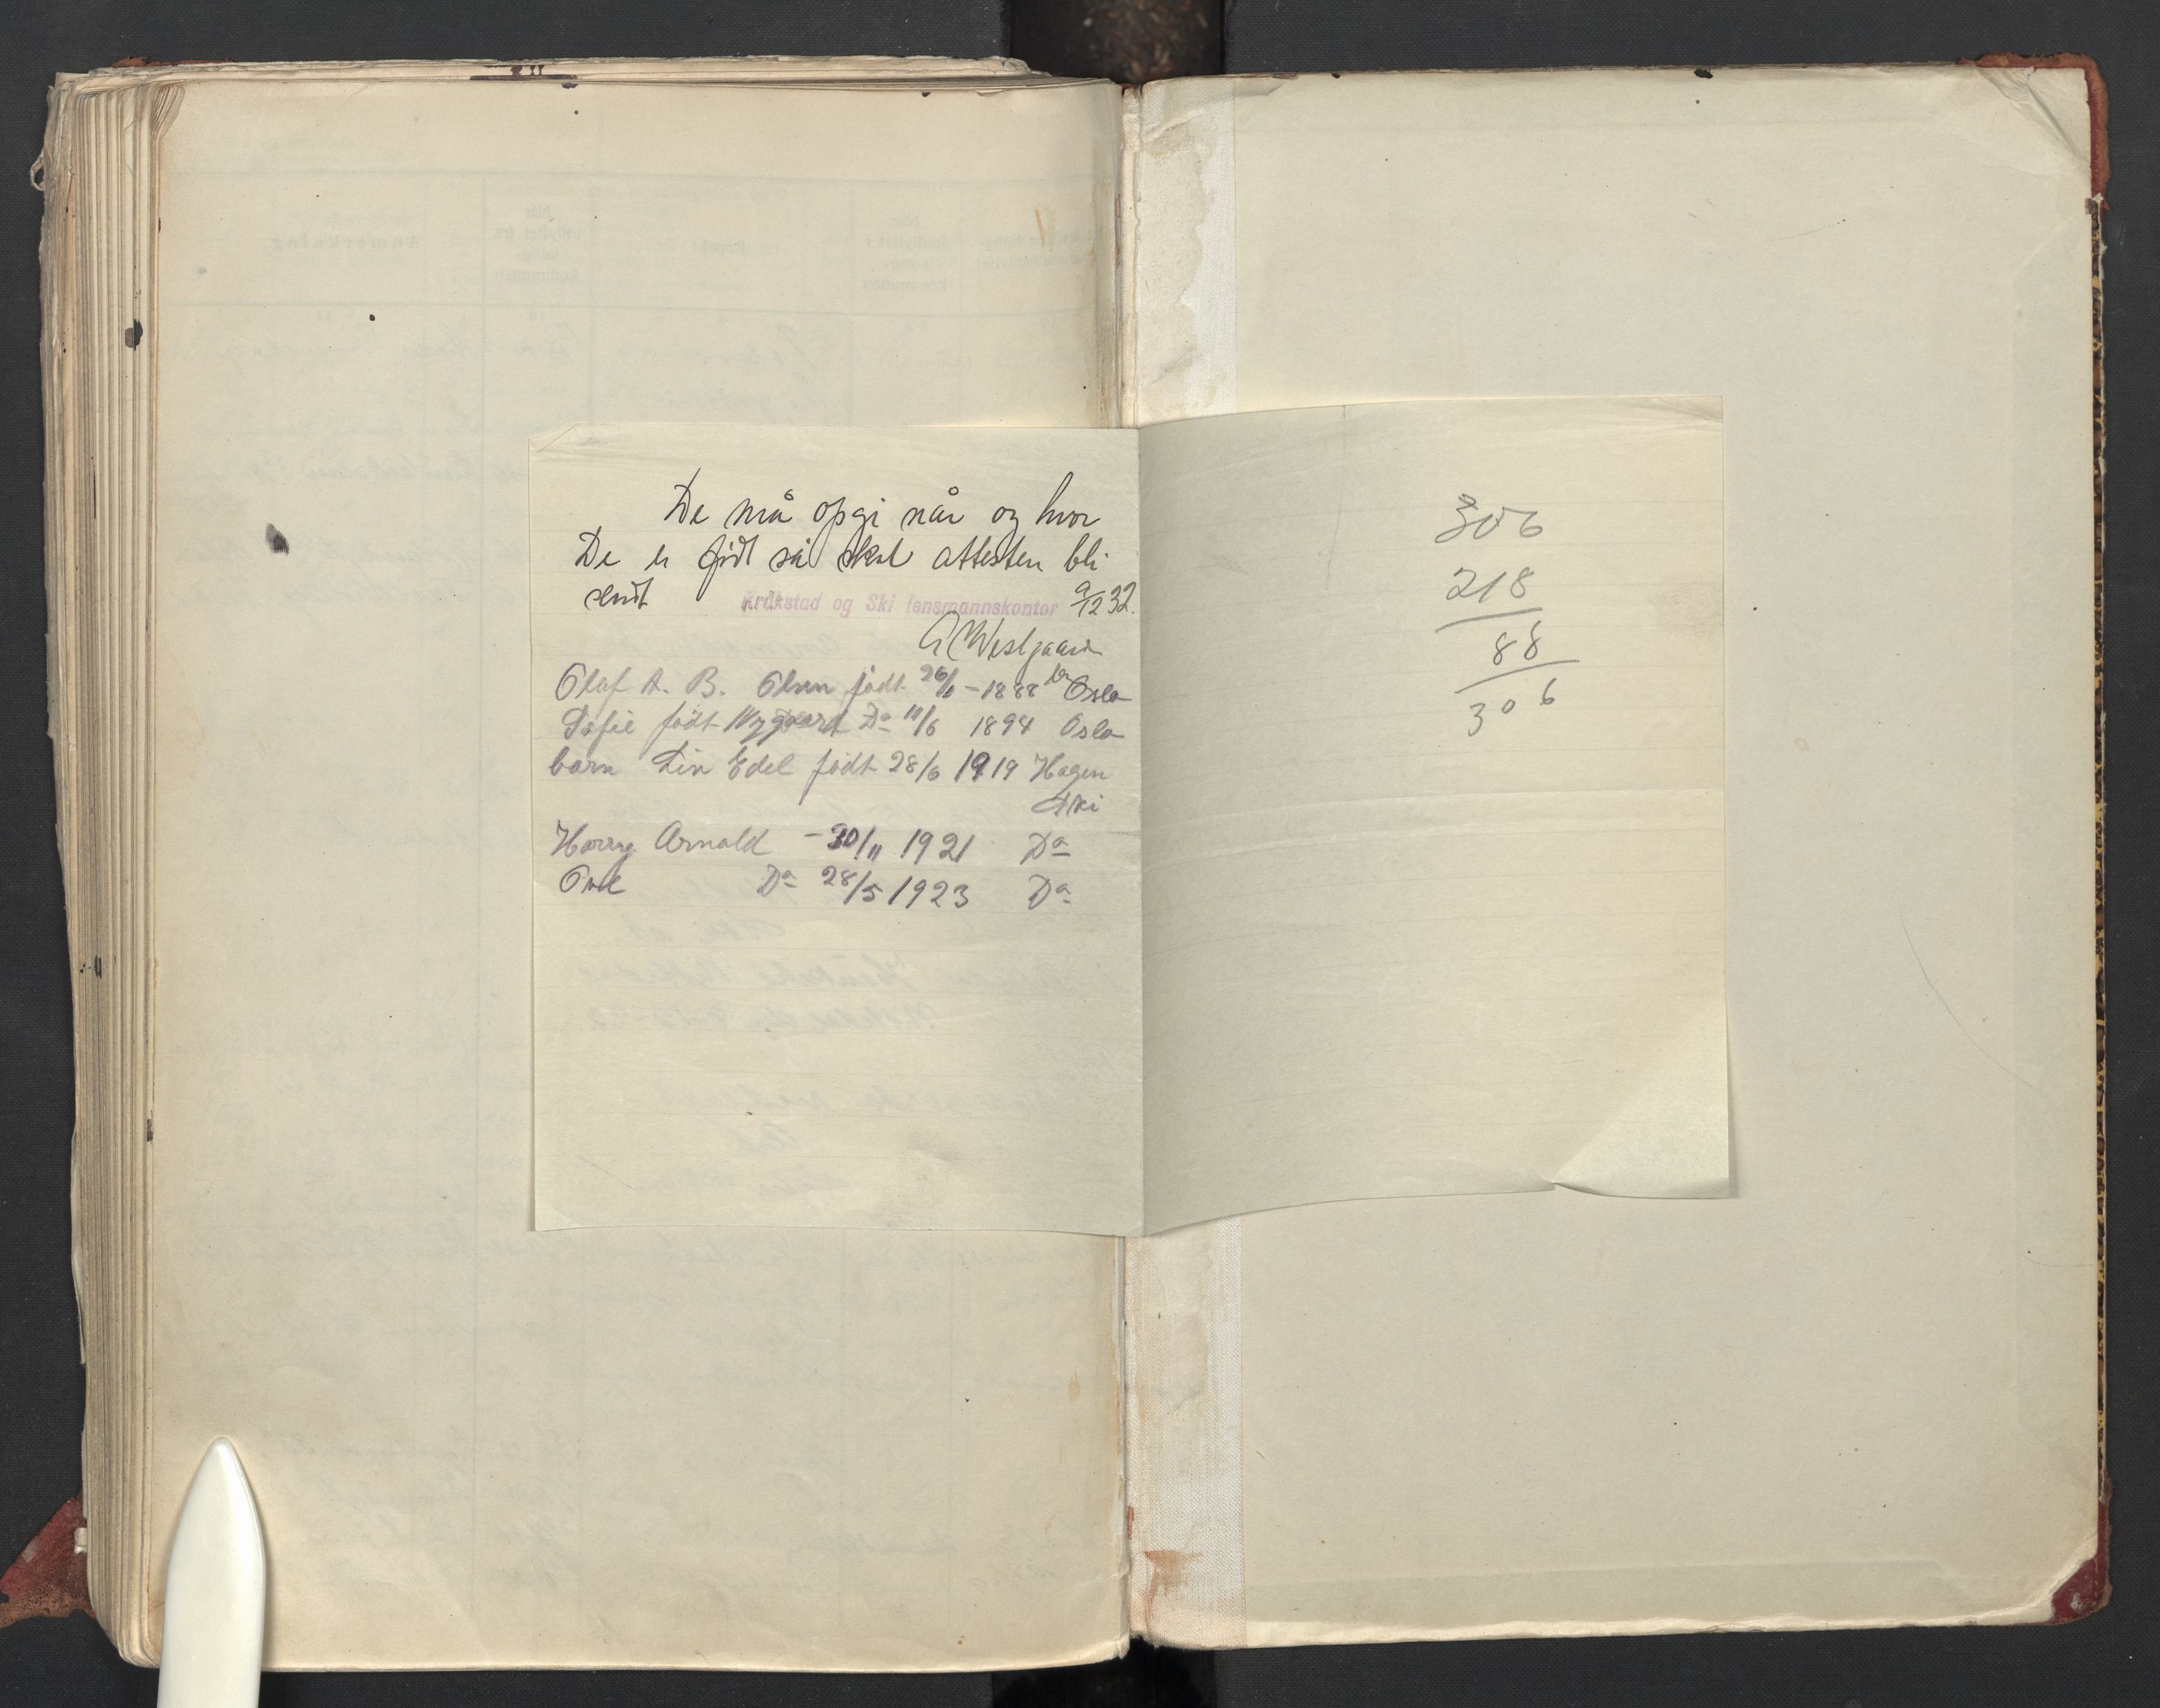 De må opgi når og hvor
De er født så skal attesten bli
sendt Kråkstad og Ski lensmannskontor 9/12 32.
Westgaard
Olaf A. B. Olsen født 26/ - 1888 Oslo
Sofie født Nygaard Do 11/6 1894 Oslo
barn Liv Edel født 28/6 1919 Hagen
Ski
Harry Arnold - 30/11 1921 Do
Do 28/5 1923 Do
306
218
88
306